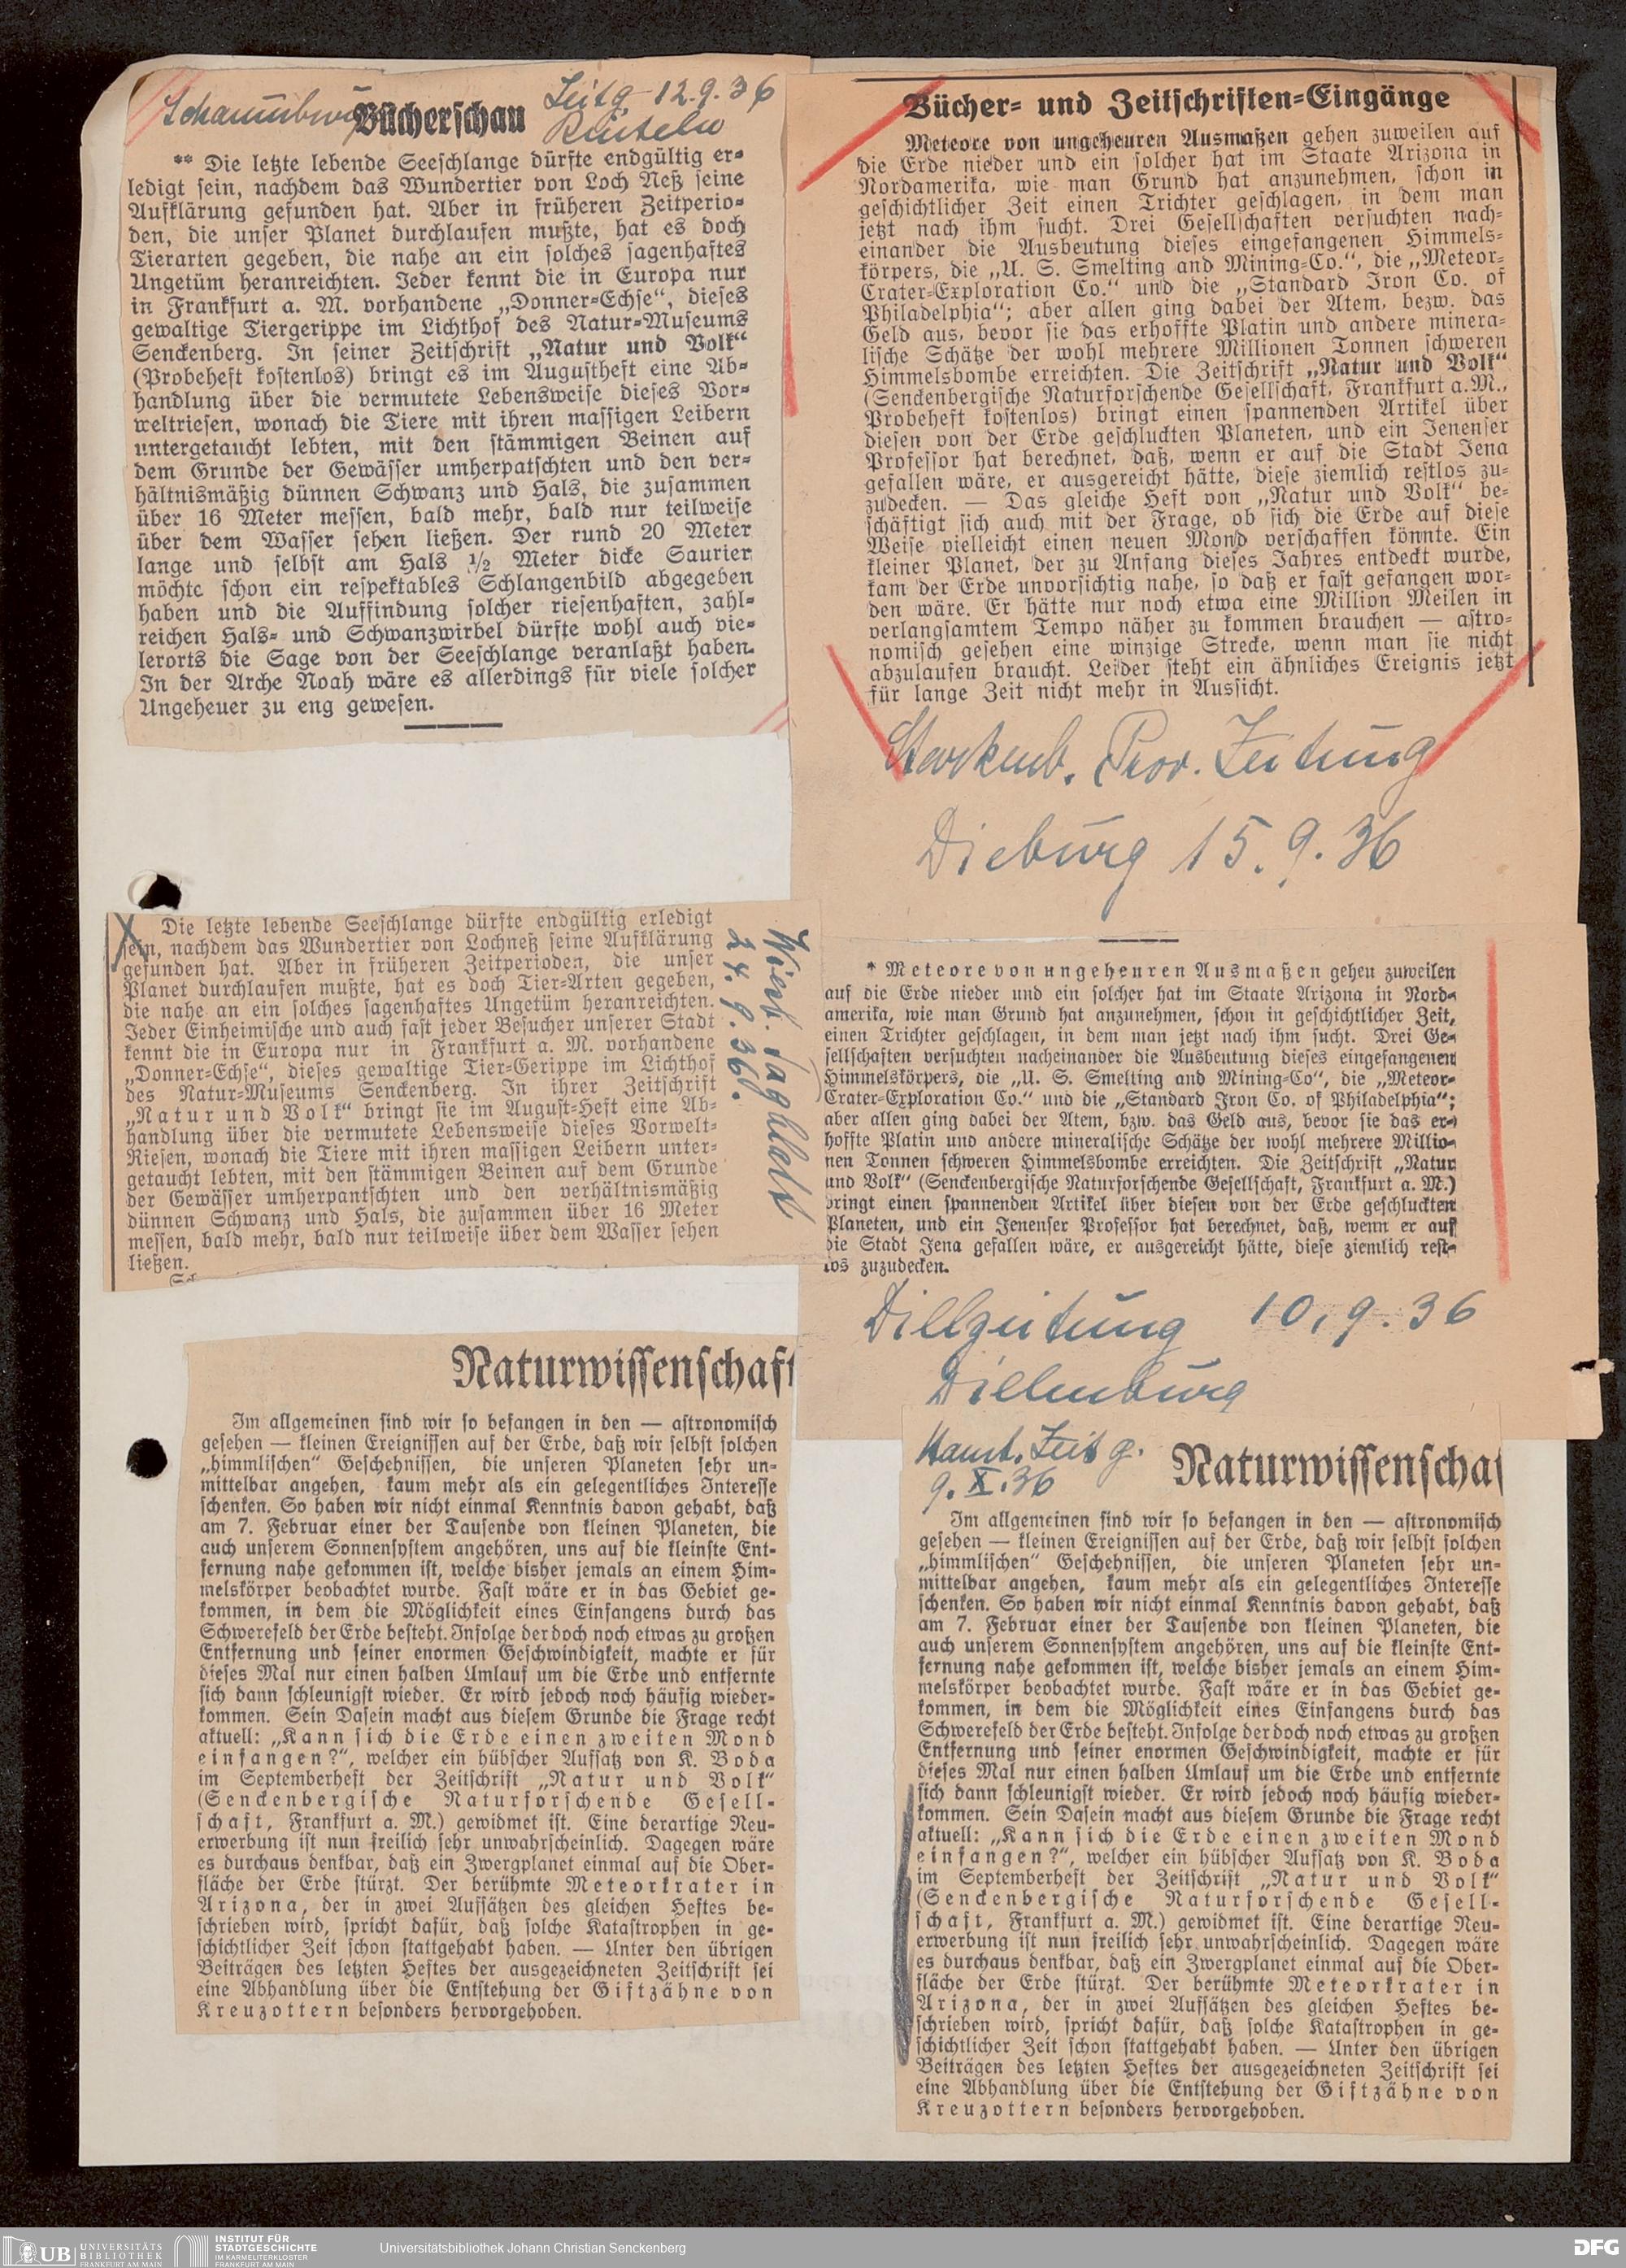 Schaumburg Zeitg 12.9.36
Rinteln
Bücherschau
** Die letzte lebende Seeschlange dürfte endgültig er-
ledigt sein, nachdem das Wundertier von Loch Neß seine
Aufklärung gefunden hat. Aber in früheren Zeitperio-
den, die unser Planet durchlaufen mußte, hat es doch
Tierarten gegeben, die nahe an ein solches sagenhaftes
Ungetüm heranreichten. Jeder kennt die in Europa nur
in Frankfurt a. M. vorhandene „Donner-Echse“, dieses
gewaltige Tiergerippe im Lichthof des Natur-Museums
Senckenberg. In seiner Zeitschrift „Natur und Volk“
(Probeheft kostenlos) bringt es im Augustheft eine Ab-
handlung über die vermutete Lebensweise dieses Vor-
weltriesen, wonach die Tiere mit ihren massigen Leibern
untergetaucht lebten, mit den stämmigen Beinen auf
dem Grunde der Gewässer umherpatschten und den ver-
hältnismäßig dünnen Schwanz und Hals, die zusammen
über 16 Meter messen, bald mehr, bald nur teilweise
über dem Wasser sehen ließen. Der rund 20 Meter
lange und selbst am Hals ½ Meter dicke Saurier
möchte schon ein respektables Schlangenbild abgegeben
haben und die Auffindung solcher riesenhaften, zahl-
reichen Hals- und Schwanzwirbel dürfte wohl auch vie-
lerorts die Sage von der Seeschlange veranlaßt haben.
In der Arche Noah wäre es allerdings für viele solcher
Ungeheuer zu eng gewesen.
Bücher- und Zeitschriften-Eingänge
Meteore von ungeheuren Ausmaßen gehen zuweilen auf
die Erde nieder und ein solcher hat im Staate Arizona in
Nordamerika, wie man Grund hat anzunehmen, schon in
geschichtlicher Zeit einen Trichter geschlagen, in dem man
jetzt nach ihm sucht. Drei Gesellschaften versuchten nach-
einander die Ausbeutung dieses eingefangenen Himmels-
körpers, die „U. S. Smelting and Mining-Co.“, die „Meteor-
Crater-Exploration Co.“ und die „Standard Iron Co. of
Philadelphia“; aber allen ging dabei der Atem, bezw. das
Geld aus, bevor sie das erhoffte Platin und andere minera-
lische Schätze der wohl mehrere Millionen Tonnen schweren
Himmelsbombe erreichten. Die Zeitschrift „Natur und Volk“
(Senckenbergische Naturforschende Gesellschaft, Frankfurt a.M.,
Probeheft kostenlos) bringt einen spannenden Artikel über
diesen von der Erde geschluckten Planeten, und ein Jenenser
Professor hat berechnet, daß, wenn er auf die Stadt Jena
gefallen wäre, er ausgereicht hätte, diese ziemlich restlos zu-
zudecken. — Das gleiche Heft von „Natur und Volk“ be-
schäftigt sich auch mit der Frage, ob sich die Erde auf diese
Weise vielleicht einen neuen Mond verschaffen könnte. Ein
kleiner Planet, der zu Anfang dieses Jahres entdeckt wurde,
kam der Erde unvorsichtig nahe, so daß er fast gefangen wor-
den wäre. Er hätte nur noch etwa eine Million Meilen in
verlangsamtem Tempo näher zu kommen brauchen — astro-
nomisch gesehen eine winzige Strecke, wenn man sie nicht
abzulaufen braucht. Leider steht ein ähnliches Ereignis jetzt
für lange Zeit nicht mehr in Aussicht.
Starkenb. Prov. Zeitung
Dieburg 15.9.36
Die letzte lebende Seeschlange dürfte endgültig erledigt
sein, nachdem das Wundertier von Lochneß seine Aufklärung
gefunden hat. Aber in früheren Zeitperioden, die unser
Planet durchlaufen mußte, hat es doch Tier-Arten gegeben,
die nahe an ein solches sagenhaftes Ungetüm heranreichten.
Jeder Einheimische und auch fast jeder Besucher unserer Stadt
kennt die in Europa nur in Frankfurt a. M. vorhandene
„Donner-Echse“, dieses gewaltige Tier-Gerippe im Lichthof
des Natur-Museums Senckenberg. In ihrer Zeitschrift
„Natur und Volk“ bringt sie im August-Heft eine Ab-
handlung über die vermutete Lebensweise dieses Vorwelt-
Riesen, wonach die Tiere mit ihren massigen Leibern unter-
getaucht lebten, mit den stämmigen Beinen auf dem Grunde
der Gewässer umherpantschten und den verhältnismäßig
dünnen Schwanz und Hals, die zusammen über 16 Meter
messen, bald mehr, bald nur teilweise über dem Wasser sehen
ließen.
Wiesb. Tagblatt
24.9.36.
* Meteore von ungeheuren Ausmaßen gehen zuweilen
auf die Erde nieder und ein solcher hat im Staate Arizona in Nord-
amerika, wie man Grund hat anzunehmen, schon in geschichtlicher Zeit,
einen Trichter geschlagen, in dem man jetzt nach ihm sucht. Drei Ge-
sellschaften versuchten nacheinander die Ausbeutung dieses eingefangenen
Himmelskörpers, die „U. S. Smelting and Mining-Co“, die „Meteor-
Crater-Exploration Co.“ und die „Standard Iron Co. of Philadelphia“;
aber allen ging dabei der Atem, bzw. das Geld aus, bevor sie das er-
hoffte Platin und andere mineralische Schätze der wohl mehrere Millio-
nen Tonnen schweren Himmelsbombe erreichten. Die Zeitschrift „Natur
und Volk“ (Senckenbergische Naturforschende Gesellschaft, Frankfurt a. M.)
bringt einen spannenden Artikel über diesen von der Erde geschluckten
Planeten, und ein Jenenser Professor hat berechnet, daß, wenn er auf
die Stadt Jena gefallen wäre, er ausgereicht hätte, diese ziemlich rest-
los zuzudecken.
Dillzeitung 10.9.36
Dillenburg
Naturwissenschaft
Im allgemeinen sind wir so befangen in den — astronomisch
gesehen — kleinen Ereignissen auf der Erde, daß wir selbst solchen
„himmlischen“ Geschehnissen, die unseren Planeten sehr un-
mittelbar angehen, kaum mehr als ein gelegentliches Interesse
schenken. So haben wir nicht einmal Kenntnis davon gehabt, daß
am 7. Februar einer der Tausende von kleinen Planeten, die
auch unserem Sonnensystem angehören, uns auf die kleinste Ent-
fernung nahe gekommen ist, welche bisher jemals an einem Him-
melskörper beobachtet wurde. Fast wäre er in das Gebiet ge-
kommen, in dem die Möglichkeit eines Einfangens durch das
Schwerefeld der Erde besteht. Infolge der doch noch etwas zu großen
Entfernung und seiner enormen Geschwindigkeit, machte er für
dieses Mal nur einen halben Umlauf um die Erde und entfernte
sich dann schleunigst wieder. Er wird jedoch noch häufig wieder-
kommen. Sein Dasein macht aus diesem Grunde die Frage recht
aktuell: „Kann sich die Erde einen zweiten Mond
einfangen?“, welcher ein hübscher Aufsatz von K. Boda
im Septemberheft der Zeitschrift „Natur und Volk“
(Senckenbergische Naturforschende Gesell-
schaft, Frankfurt a. M.) gewidmet ist. Eine derartige Neu-
erwerbung ist nun freilich sehr unwahrscheinlich. Dagegen wäre
es durchaus denkbar, daß ein Zwergplanet einmal auf die Ober-
fläche der Erde stürzt. Der berühmte Meteorkrater in
Arizona, der in zwei Aufsätzen des gleichen Heftes be-
schrieben wird, spricht dafür, daß solche Katastrophen in ge-
schichtlicher Zeit schon stattgehabt haben. — Unter den übrigen
Beiträgen des letzten Heftes der ausgezeichneten Zeitschrift sei
eine Abhandlung über die Entstehung der Giftzähne von
Kreuzottern besonders hervorgehoben.
Hamb. Zeitg.
9.X.36
Naturwissenschaf
Im allgemeinen sind wir so befangen in den — astronomisch
gesehen — kleinen Ereignissen auf der Erde, daß wir selbst solchen
„himmlischen“ Geschehnissen, die unseren Planeten sehr un-
mittelbar angehen, kaum mehr als ein gelegentliches Interesse
schenken. So haben wir nicht einmal Kenntnis davon gehabt, daß
am 7. Februar einer der Tausende von kleinen Planeten, die
auch unserem Sonnensystem angehören, uns auf die kleinste Ent-
fernung nahe gekommen ist, welche bisher jemals an einem Him-
melskörper beobachtet wurde. Fast wäre er in das Gebiet ge-
kommen, in dem die Möglichkeit eines Einfangens durch das
Schwerefeld der Erde besteht. Infolge der doch noch etwas zu großen
Entfernung und seiner enormen Geschwindigkeit, machte er für
dieses Mal nur einen halben Umlauf um die Erde und entfernte
sich dann schleunigst wieder. Er wird jedoch noch häufig wieder-
kommen. Sein Dasein macht aus diesem Grunde die Frage recht
aktuell: „Kann sich die Erde einen zweiten Mond
einfangen?“, welcher ein hübscher Aufsatz von K. Boda
im Septemberheft der Zeitschrift „Natur und Volk“
(Senckenbergische Naturforschende Gesell-
schaft, Frankfurt a. M.) gewidmet ist. Eine derartige Neu-
erwerbung ist nun freilich sehr unwahrscheinlich. Dagegen wäre
es durchaus denkbar, daß ein Zwergplanet einmal auf die Ober-
fläche der Erde stürzt. Der berühmte Meteorkrater in
Arizona, der in zwei Aufsätzen des gleichen Heftes be-
schrieben wird, spricht dafür, daß solche Katastrophen in ge-
schichtlicher Zeit schon stattgehabt haben. — Unter den übrigen
Beiträgen des letzten Heftes der ausgezeichneten Zeitschrift sei
eine Abhandlung über die Entstehung der Giftzähne von
Kreuzottern besonders hervorgehoben.
UB UNIVERSITÄTS
BIBLIOTHEK
FRANKFURT AM MAIN
INSTITUT FÜR
STADTGESCHICHTE
IM KARMELITERKLOSTER
FRANKFURT AM MAIN
Universitätsbibliothek Johann Christian Senckenberg
DFG